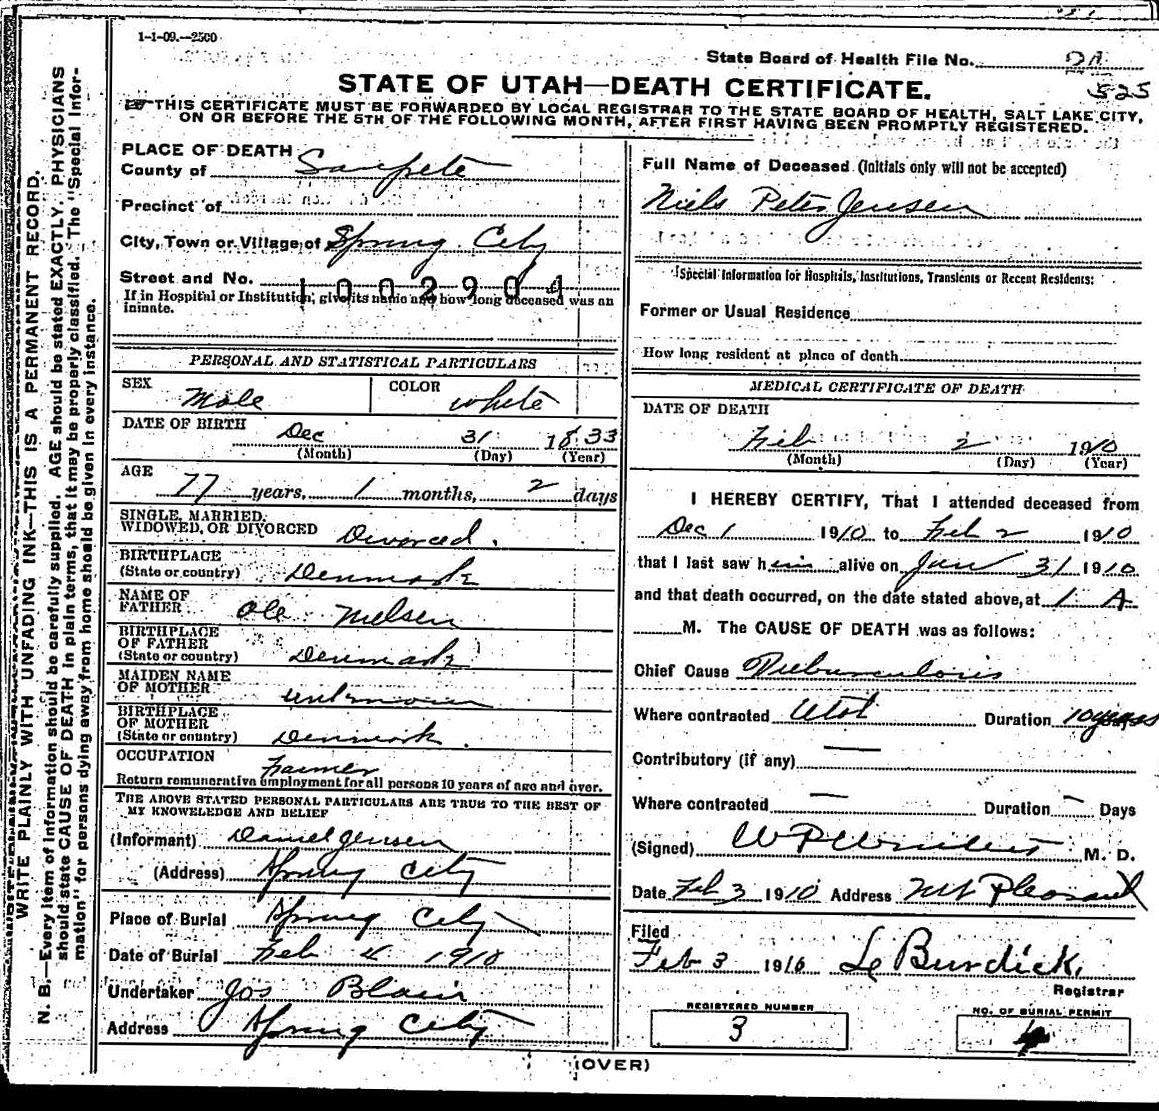 1-1-09.--2500
State Board of Health File No.
525
STATE OF UTAH—DEATH CERTIFICATE.
THIS CERTIFICATE MUST BE FORWARDED BY LOCAL REGISTRAR TO THE STATE BOARD OF HEALTH, SALT LAKE CITY,
ON OR BEFORE THE 5TH OF THE FOLLOWING MONTH, AFTER FIRST HAVING BEEN PROMPTLY REGISTERED.
WRITE PLAINLY WITH UNFADING INK—THIS IS A PERMANENT RECORD.
N. B.—Every item of information should be carefully supplied. AGE should be stated EXACTLY. PHYSICIANS
should state CAUSE OF DEATH in plain terms, that it may be properly classified. The "Special Infor-
mation" for persons dying away from home should be given in every instance.
PLACE OF DEATH
County of Sanpete
Precinct of
City, Town or Village of Spring City
Street and No.
1002904
If in Hospital or Institution, give its name and how long deceased was an
inmate.
PERSONAL AND STATISTICAL PARTICULARS
SEX Male COLOR white
DATE OF BIRTH Dec 31 1833
(Month) (Day) (Year)
AGE 77 years, 1 months, 2 days
SINGLE, MARRIED,
WIDOWED, OR DIVORCED Divorced.
BIRTHPLACE
(State or country) Denmark
NAME OF
FATHER Ole Nielsen
BIRTHPLACE
OF FATHER
(State or country) Denmark
MAIDEN NAME
OF MOTHER unknown
BIRTHPLACE
OF MOTHER
(State or country) Denmark.
OCCUPATION Farmer
Return remunerative employment for all persons 10 years of age and over.
THE ABOVE STATED PERSONAL PARTICULARS ARE TRUE TO THE BEST OF
MY KNOWELEDGE AND BELIEF
(Informant) Daniel Jensen
(Address) Spring City
Place of Burial Spring City
Date of Burial Feb 4 1910
Undertaker Jos Blain
Address Spring City
Full Name of Deceased (initials only will not be accepted)
Niels Peter Jensen
(Special Information for Hospitals, Institutions, Transients or Recent Residents:
Former or Usual Residence
How long resident at place of death
MEDICAL CERTIFICATE OF DEATH
DATE OF DEATH
Feb 2 1910
(Month) (Day) (Year)
I HEREBY CERTIFY, That I attended deceased from
Dec 1 1910 to Feb 2 1910
that I last saw him alive on Jan 31 1910
and that death occurred, on the date stated above, at 1 A
M. The CAUSE OF DEATH was as follows:
Chief Cause Tuburculosis
Where contracted Utah Duration 10 years
Contributory (if any) —
Where contracted — Duration – Days
(Signed) M. D.
Date Feb 3 1910 Address Mt Pleasant
Filed
Feb 3 1910 Burdick,
Registrar
REGISTERED NUMBER
3
NO. OF BURIAL PERMIT
4
(OVER)